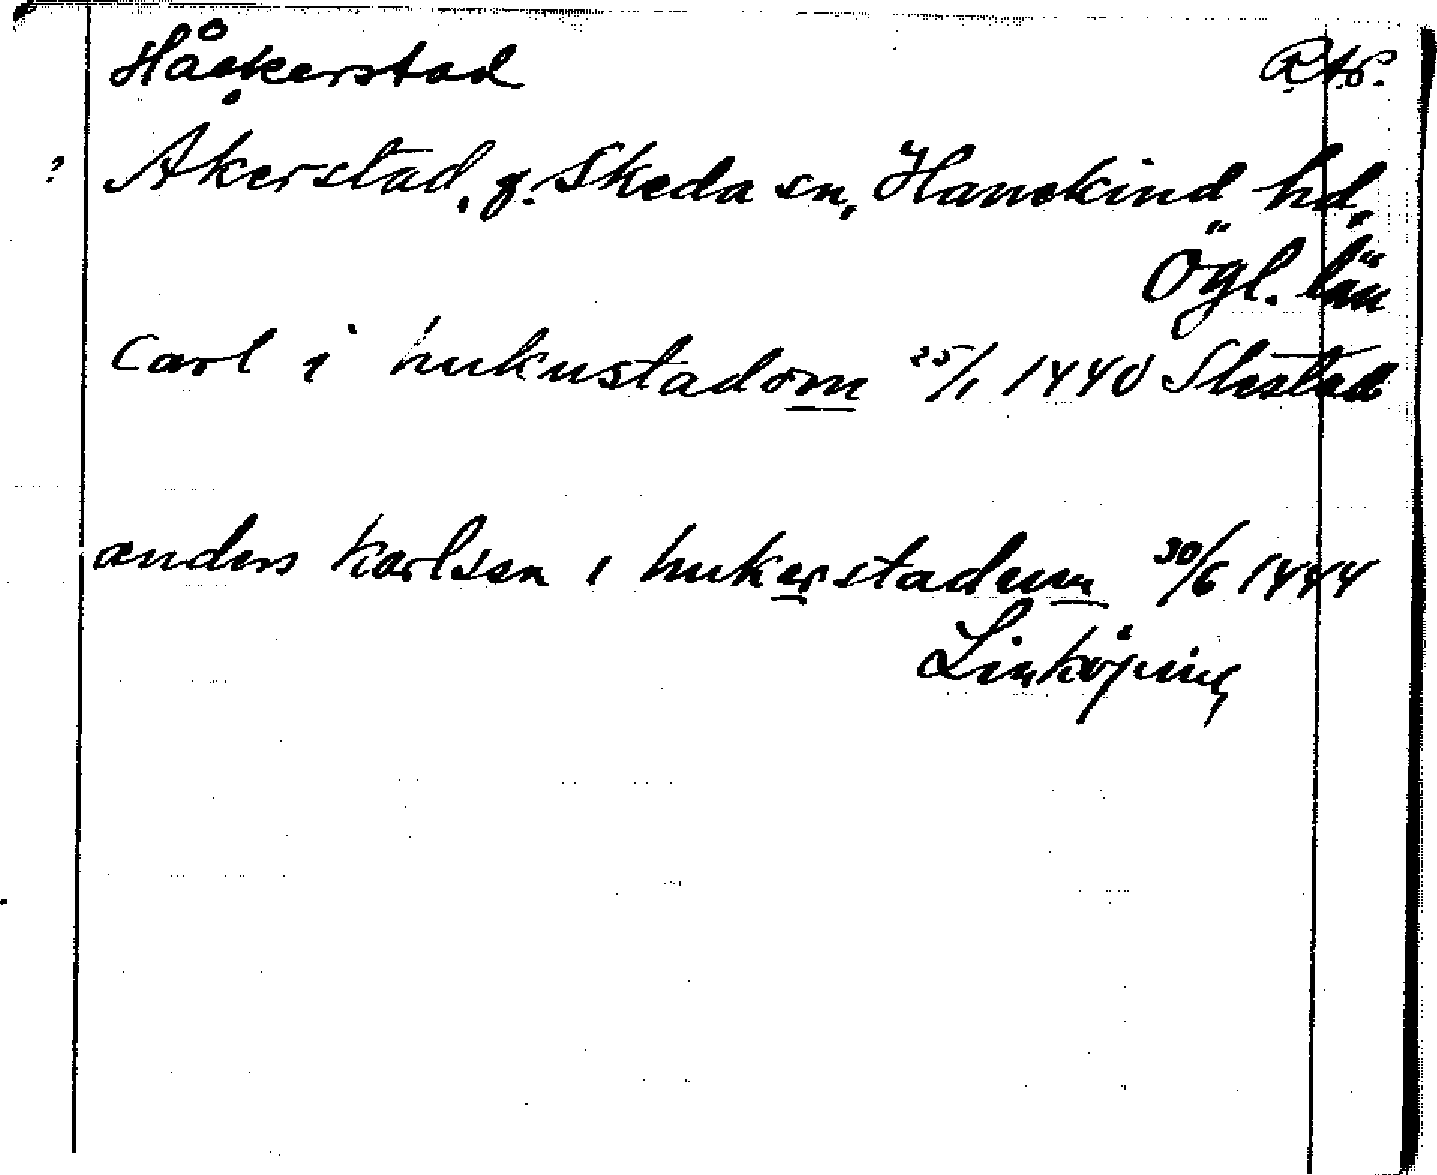 Håckerstad
? Åkerstad, g. Skeda sn, Hanekind hd,
Ögl. län
Carl i hukustadom 25/1 1440
anders karlsen i hukerstadum 30/6 1444
Linköping